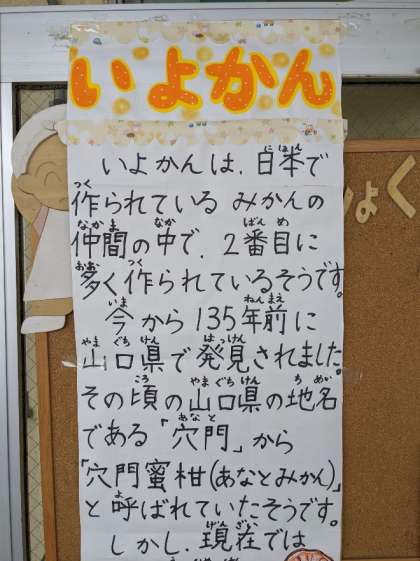 いよかん
いよかんは、日本で
作られているみかんの
仲間の中で、2番目に
多く作られているそうです。
今から135年前に
山口県で発見されました。
その頃の山口県の地名
である「穴門」から
「穴門蜜柑(あなとみかん)」
と呼ばれていたそうです。
しかし、現在では